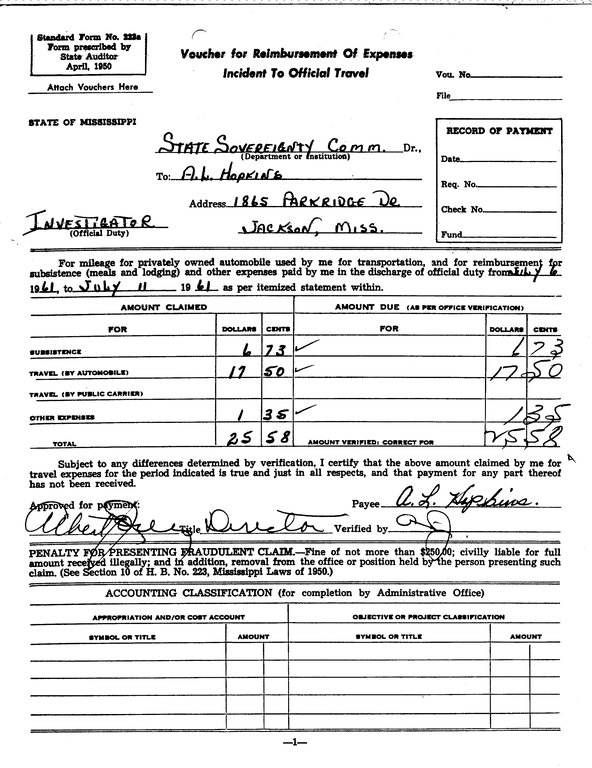 Standard Form No. 223a
Form prescribed by
State Auditor
April, 1950
Attach Vouchers Here
Voucher for Reimbursement Of Expenses
Incident To Official Travel
Vou. No.
File
STATE OF MISSISSIPPI
RECORD OF PAYMENT
Date
Req. No.
Check No.
Fund
STATE SOVEREIGNTY COMM. Dr.,
(Department or Institution)
To: A.L. HOPKINS
Address 1865 PARKRIDGE DR
INVESTIGATOR JACKSON, MISS.
(Official Duty)
For mileage for privately owned automobile used by me for transportation, and for reimbursement for
subsistence (meals and lodging) and other expenses paid by me in the discharge of official duty from July 6
1961, to July 11 1961 as per itemized statement within.
AMOUNT CLAIMED AMOUNT DUE (AS PER OFFICE VERIFICATION)
FOR DOLLARS CENTS FOR DOLLARS CENTS
SUBSISTENCE 6 73 6 73
TRAVEL (BY AUTOMOBILE) 17 50 17 50
TRAVEL (BY PUBLIC CARRIER)
OTHER EXPENSES 1 35 1 35
TOTAL 25 58 AMOUNT VERIFIED; CORRECT FOR 25 58
Subject to any differences determined by verification, I certify that the above amount claimed by me for
travel expenses for the period indicated is true and just in all respects, and that payment for any part thereof
has not been received.
Approved for payment: Payee A. L. Hopkins.
Albert Title Director Verified by
PENALTY FOR PRESENTING FRAUDULENT CLAIM.—Fine of not more than $250.00; civilly liable for full
amount received illegally; and in addition, removal from the office or position held by the person presenting such
claim. (See Section 10 of H. B. No. 223, Mississippi Laws of 1950.)
ACCOUNTING CLASSIFICATION (for completion by Administrative Office)
APPROPRIATION AND/OR COST ACCOUNT OBJECTIVE OR PROJECT CLASSIFICATION
SYMBOL OR TITLE AMOUNT SYMBOL OR TITLE AMOUNT
—1—